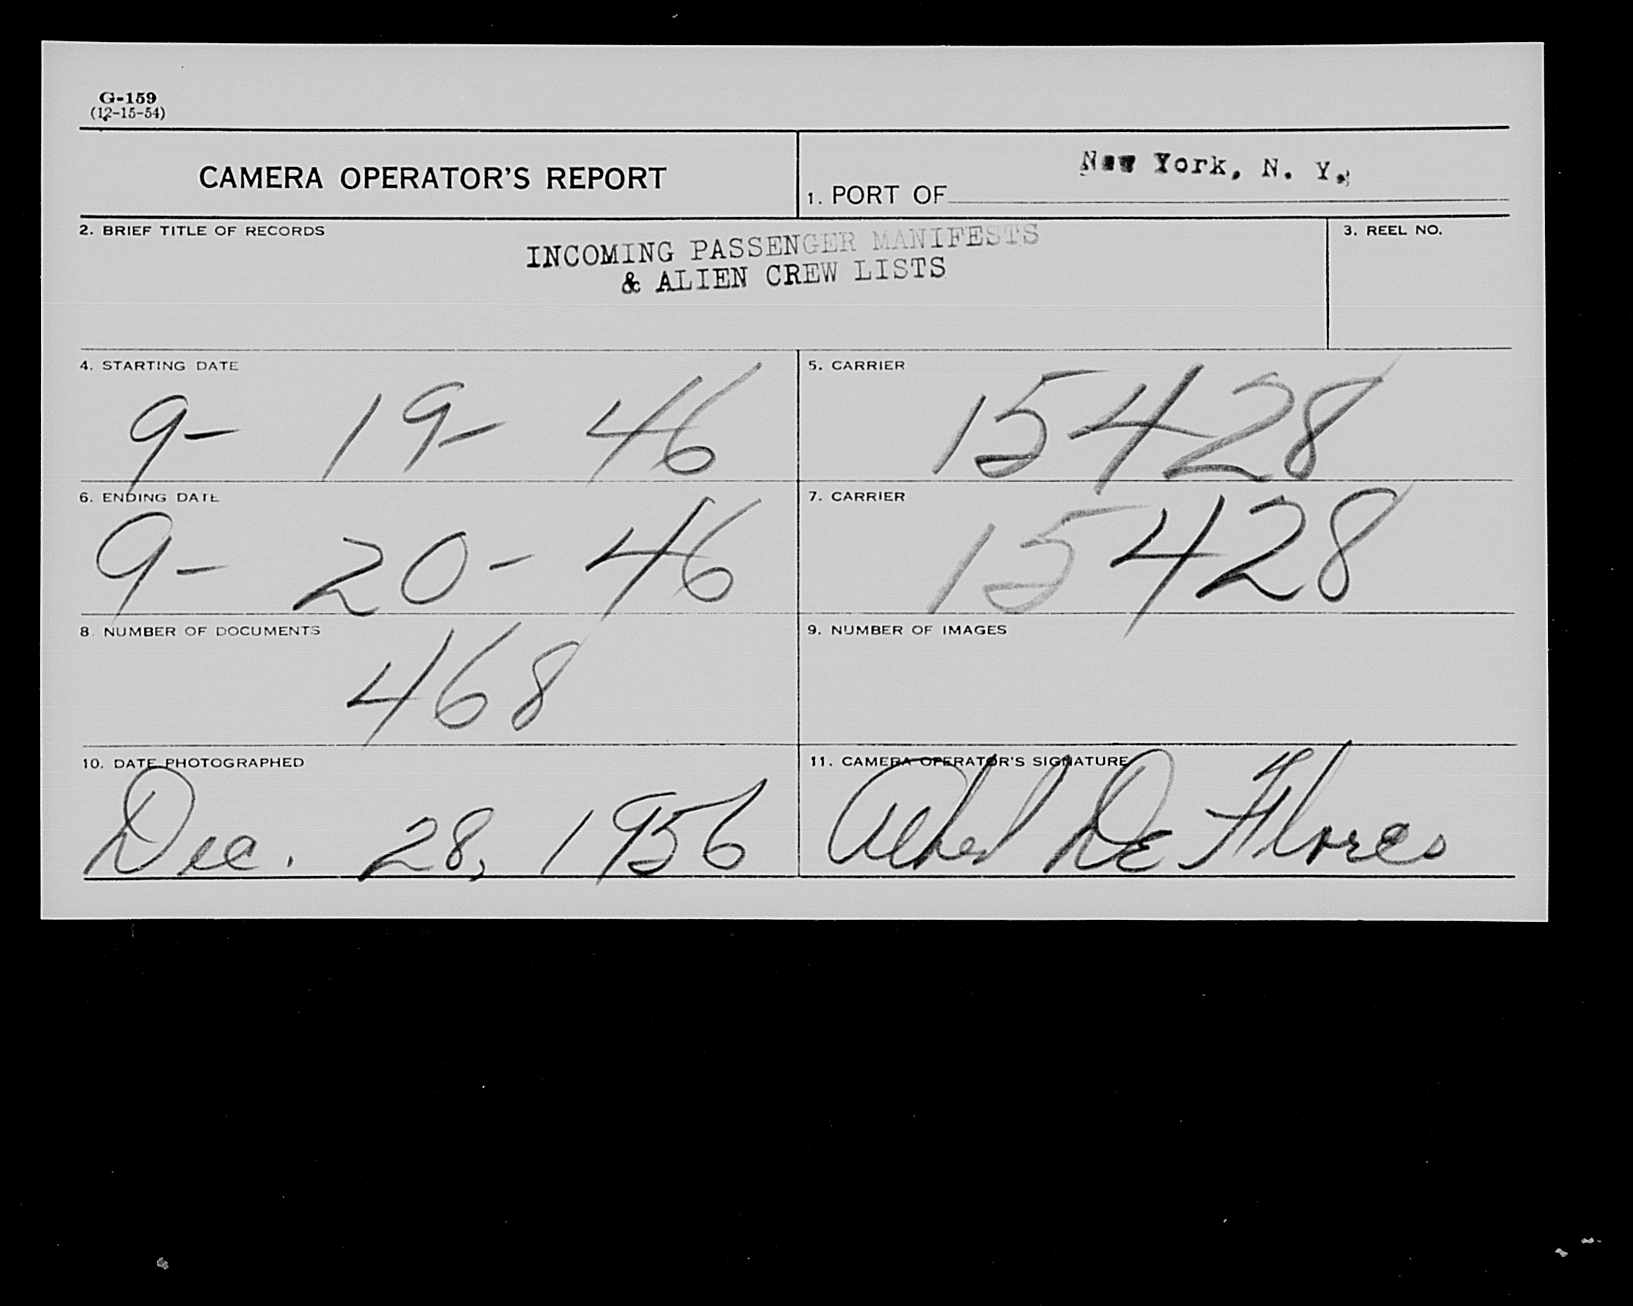 G-159
(12-15-54)
CAMERA OPERATOR'S REPORT
1. PORT OF New York, N. Y.
2. BRIEF TITLE OF RECORDS
INCOMING PASSENGER MANIFESTS
& ALIEN CREW LISTS
3. REEL NO.
4. STARTING DATE
9- 19- 46
5. CARRIER
15428
6. ENDING DATE
9- 20- 46
7. CARRIER
15428
8. NUMBER OF DOCUMENTS
468
9. NUMBER OF IMAGES
10. DATE PHOTOGRAPHED
Dec. 28, 1956
11. CAMERA OPERATOR'S SIGNATURE
De Flores